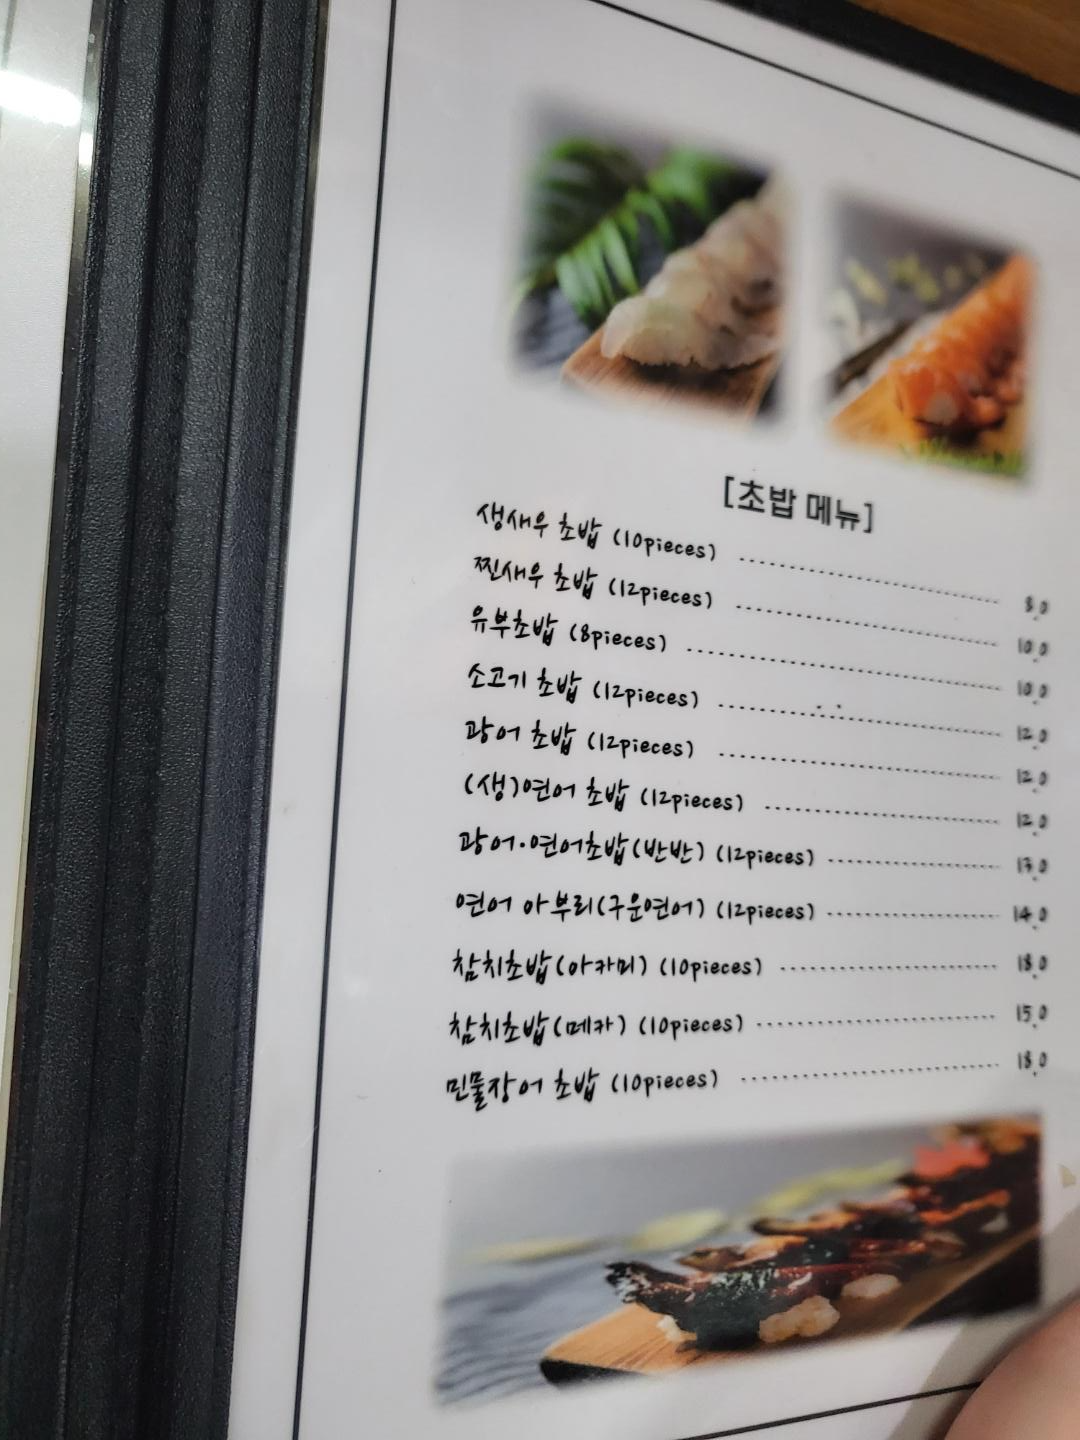 [초밥 메뉴]
생새우 초밥 (10pieces) 8.0
찐새우 초밥 (12pieces) 10.0
유부초밥 (8pieces) 10.0
소고기 초밥 (12pieces) 12.0
광어 초밥 (12pieces) 12.0
(생)연어 초밥 (12pieces) 12.0
광어·연어초밥(반반) (12pieces)
연어 아부리(구운연어) (12pieces) 14.0
참치초밥(아카미) (10pieces) 18.0
참치초밥(메카) (10pieces) 15.0
민물장어 초밥 (10pieces) 18.0